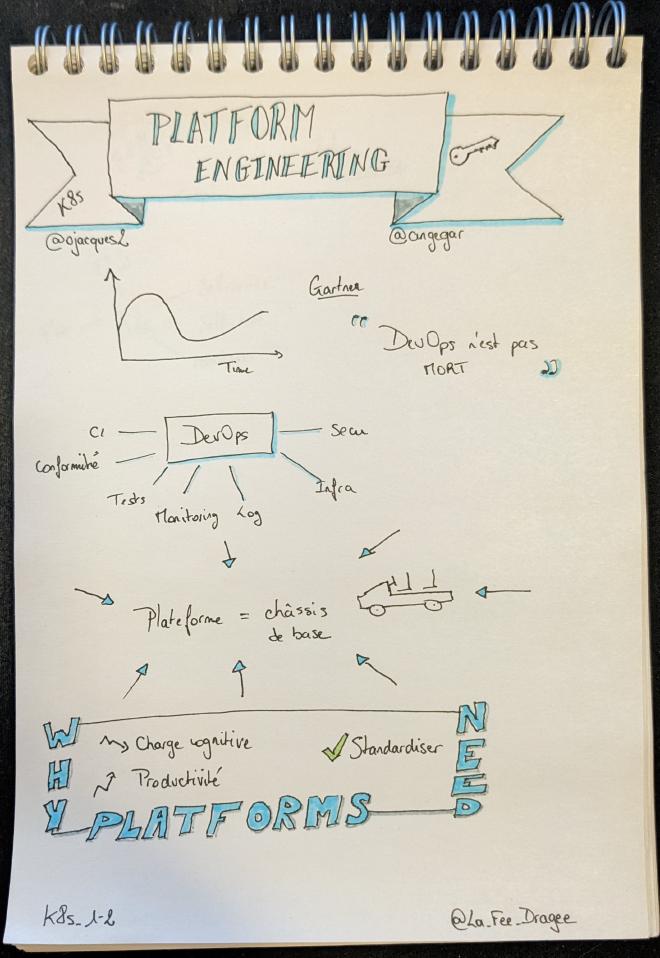 PLATFORM
ENGINEERING
K8s
@ojacques2
@angegar
Gartner
Time
" DevOps n'est pas
MORT "
CI
DevOps
Secu
Conformité
Tests
Infra
Monitoring Log
Plateforme = châssis
de base
WHY
NEED
Charge cognitive
Standardiser
Productivité
PLATFORMS
K8s_1-2
@La_Fee_Dragee